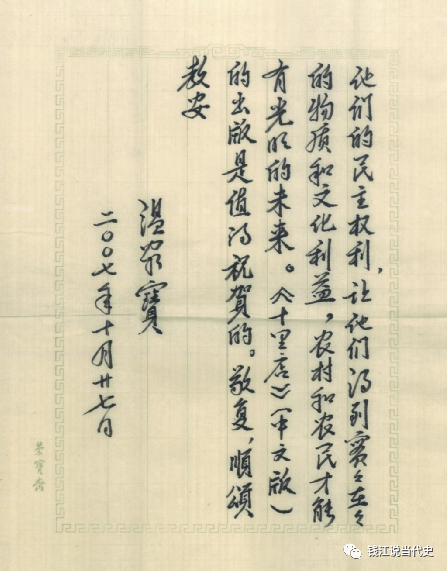 他们的民主权利，让他们得到实々在々
的物质和文化利益，农村和农民才能
有光明的未来。《十里店》（中文版）
的出版是值得祝賀的。敬复，順頌
教安
温家寶
二〇〇七年十月廿七日
荣寶斋
钱江说当代史